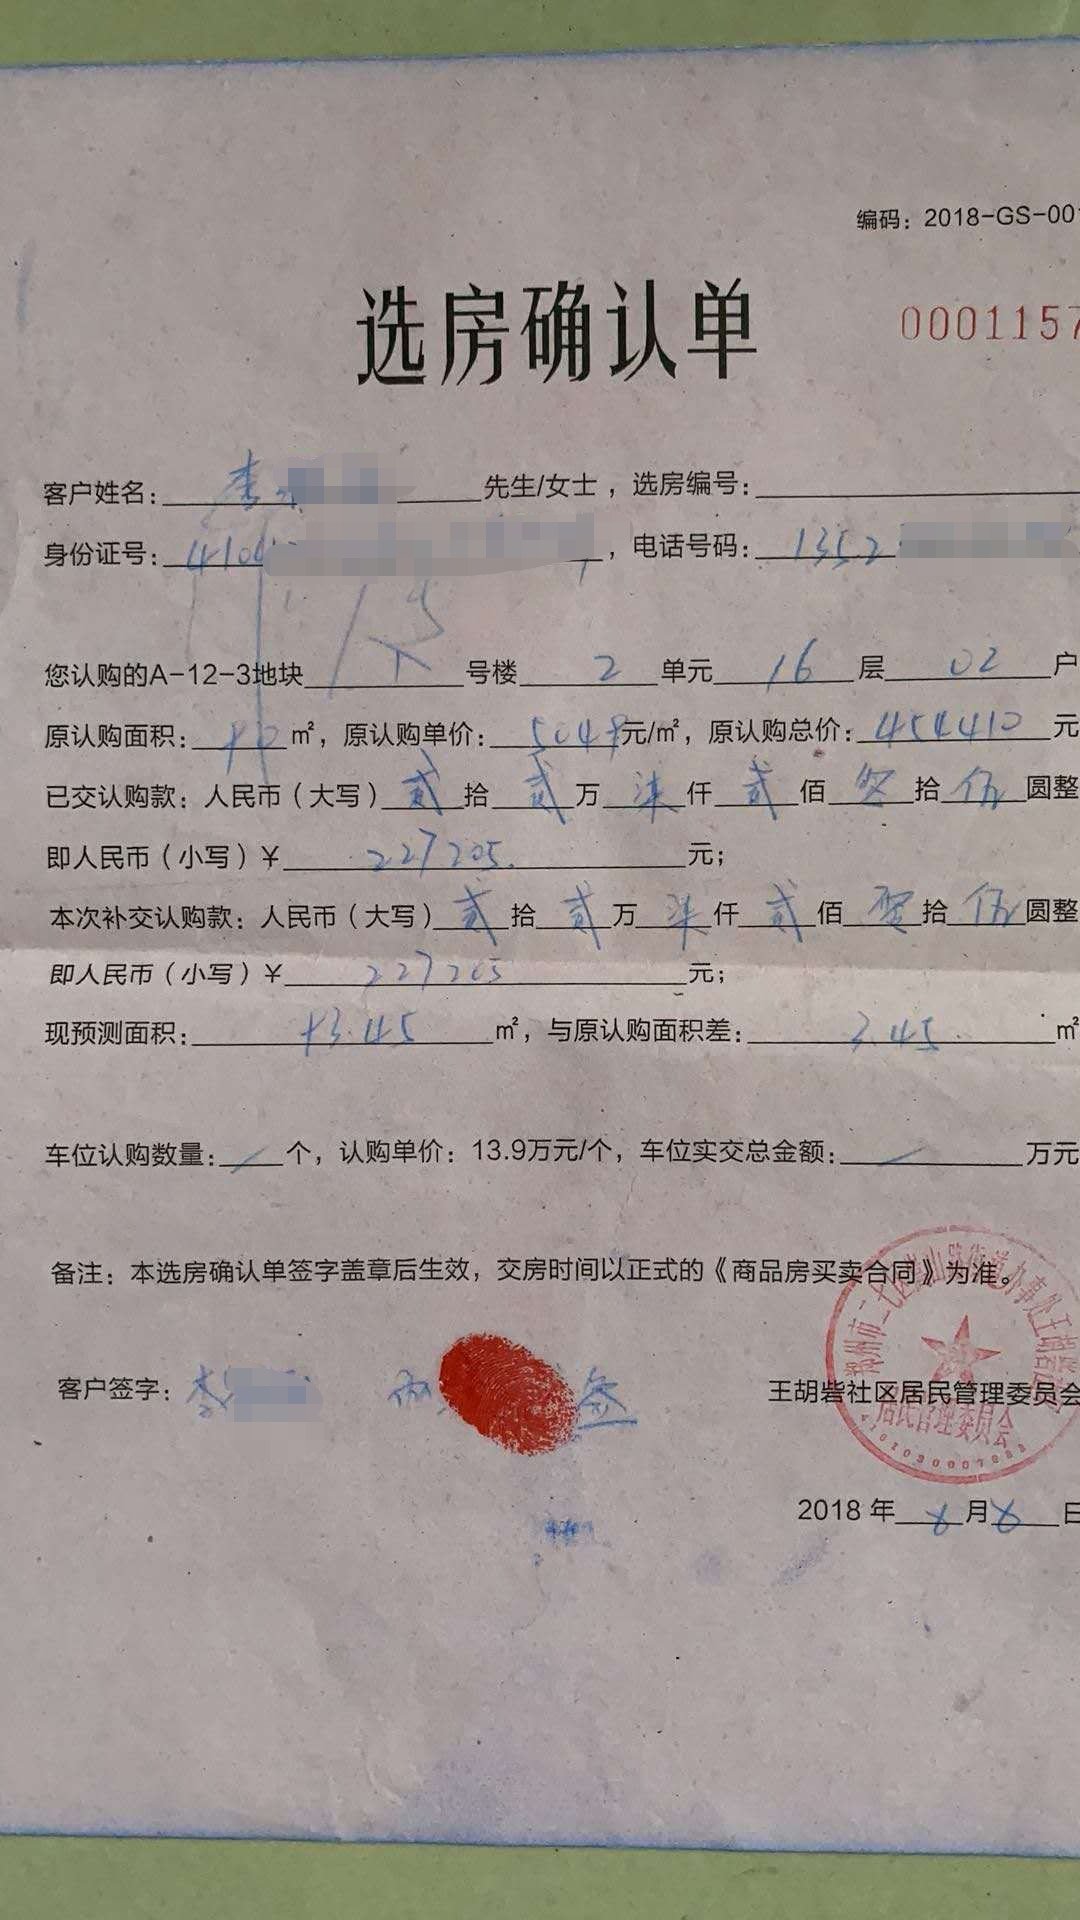 编码：2018-GS-001
选房确认单
0001157
客户姓名：李 先生/女士，选房编号：
身份证号：4104 ，电话号码：1352
您认购的A-12-3地块 号楼 2 单元 16 层 02 户
原认购面积：90 ㎡，原认购单价：5049元/㎡，原认购总价：454410 元
已交认购款：人民币（大写）贰拾贰万柒仟贰佰零拾伍圆整
即人民币（小写）￥227205.元；
本次补交认购款：人民币（大写）贰拾贰万柒仟贰佰零拾伍圆整
即人民币（小写）￥227205元；
现预测面积：93.45㎡，与原认购面积差：3.45㎡
车位认购数量：/个，认购单价：13.9万元/个，车位实交总金额：/万元
备注：本选房确认单签字盖章后生效，交房时间以正式的《商品房买卖合同》为准。
客户签字：李
王胡砦社区居民管理委员会
居民管理委员会
2018 年 月 日